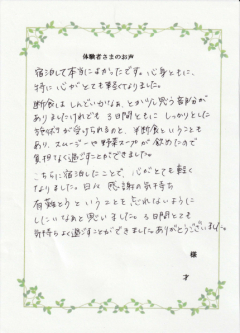 体験者さまのお声
宿泊して本当によかったです。心身ともに、
特に心がとても軽くなりました。
断食はしんどいかなぁ、とか少し思う部分が
ありましたけれども3日間ともにしっかりとした
施術が受けられるのと、半断食ということも
あり、スムージーや野菜スープが飲めたので
負担なく過ごすことができました。
こちらに宿泊したことで、心がとても軽く
なりました。日々感謝の気持ち
有難とうということを忘れないように
したいなあと思いました。3日間とても
気持ちよく過ごすことができました。ありがとうございました。
様
才